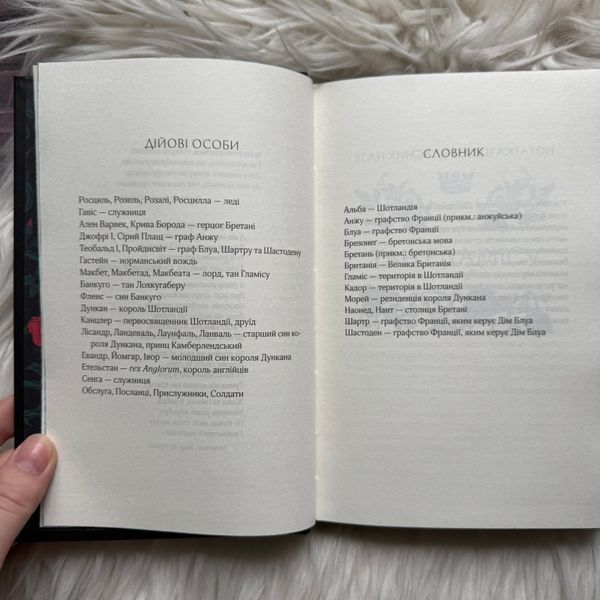 ДІЙОВІ ОСОБИ
Росциль, Розель, Розалі, Росцилла — леді
Гавіс — служниця
Ален Варвек, Крива Борода — герцог Бретані
Джофрі I, Сірий Плащ — граф Анжу
Теобальд I, Пройдисвіт — граф Блуа, Шартру та Шастодену
Гастейн — норманський вождь
Макбет, Макбетад, Макбеата — лорд, тан Гламісу
Банкуго — тан Лохкугаберу
Фленс — син Банкуго
Дункан — король Шотландії
Канцлер — первосвященник Шотландії, друїд
Лісандр, Ландеваль, Лаунфаль, Ланваль — старший син ко-
роля Дункана, принц Камберлендський
Евандр, Йомгар, Івор — молодший син короля Дункана
Етельстан — rex Anglorum, король англійців
Сенга — служниця
Обслуга, Посланці, Прислужники, Солдати
СЛОВНИК
Альба — Шотландія
Анжу — графство Франції (прикм.: анжуйська)
Блуа — графство Франції
Брезонег — бретонська мова
Бретань (прикм.: бретонська)
Британія — Велика Британія
Гламіс — територія в Шотландії
Кадор — територія в Шотландії
Морей — резиденція короля Дункана
Наонед, Нант — столиця Бретані
Шартр — графство Франції, яким керує Дім Блуа
Шастоден — графство Франції, яким керує Дім Блуа